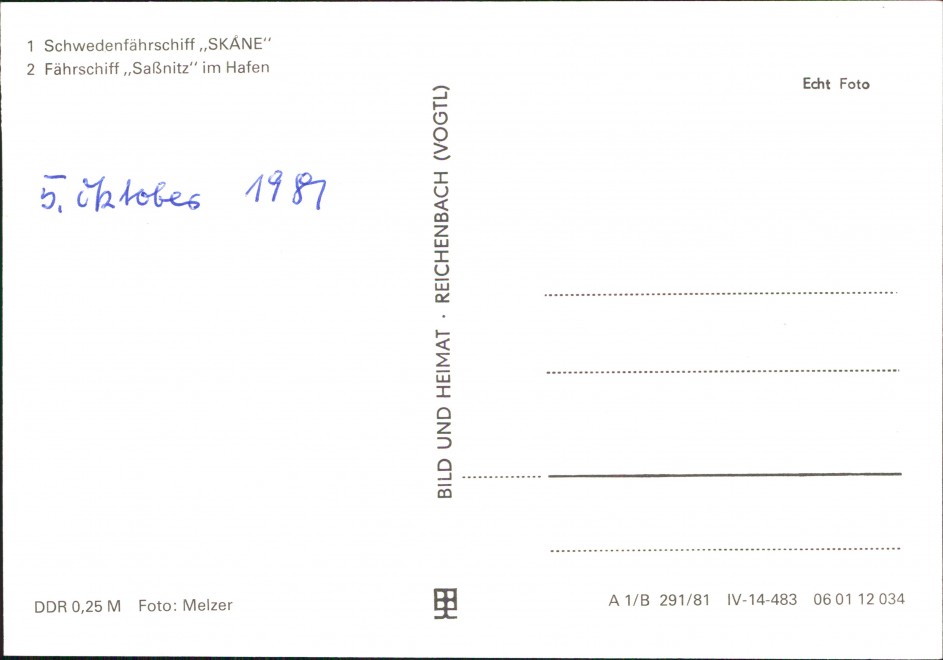 1 Schwedenfährschiff „SKÅNE"
2 Fährschiff „Saßnitz" im Hafen
Echt Foto
5. Oktober 1981
BILD UND HEIMAT · REICHENBACH (VOGTL)
DDR 0,25 M Foto: Melzer
A 1/B 291/81 IV-14-483 06 01 12 034